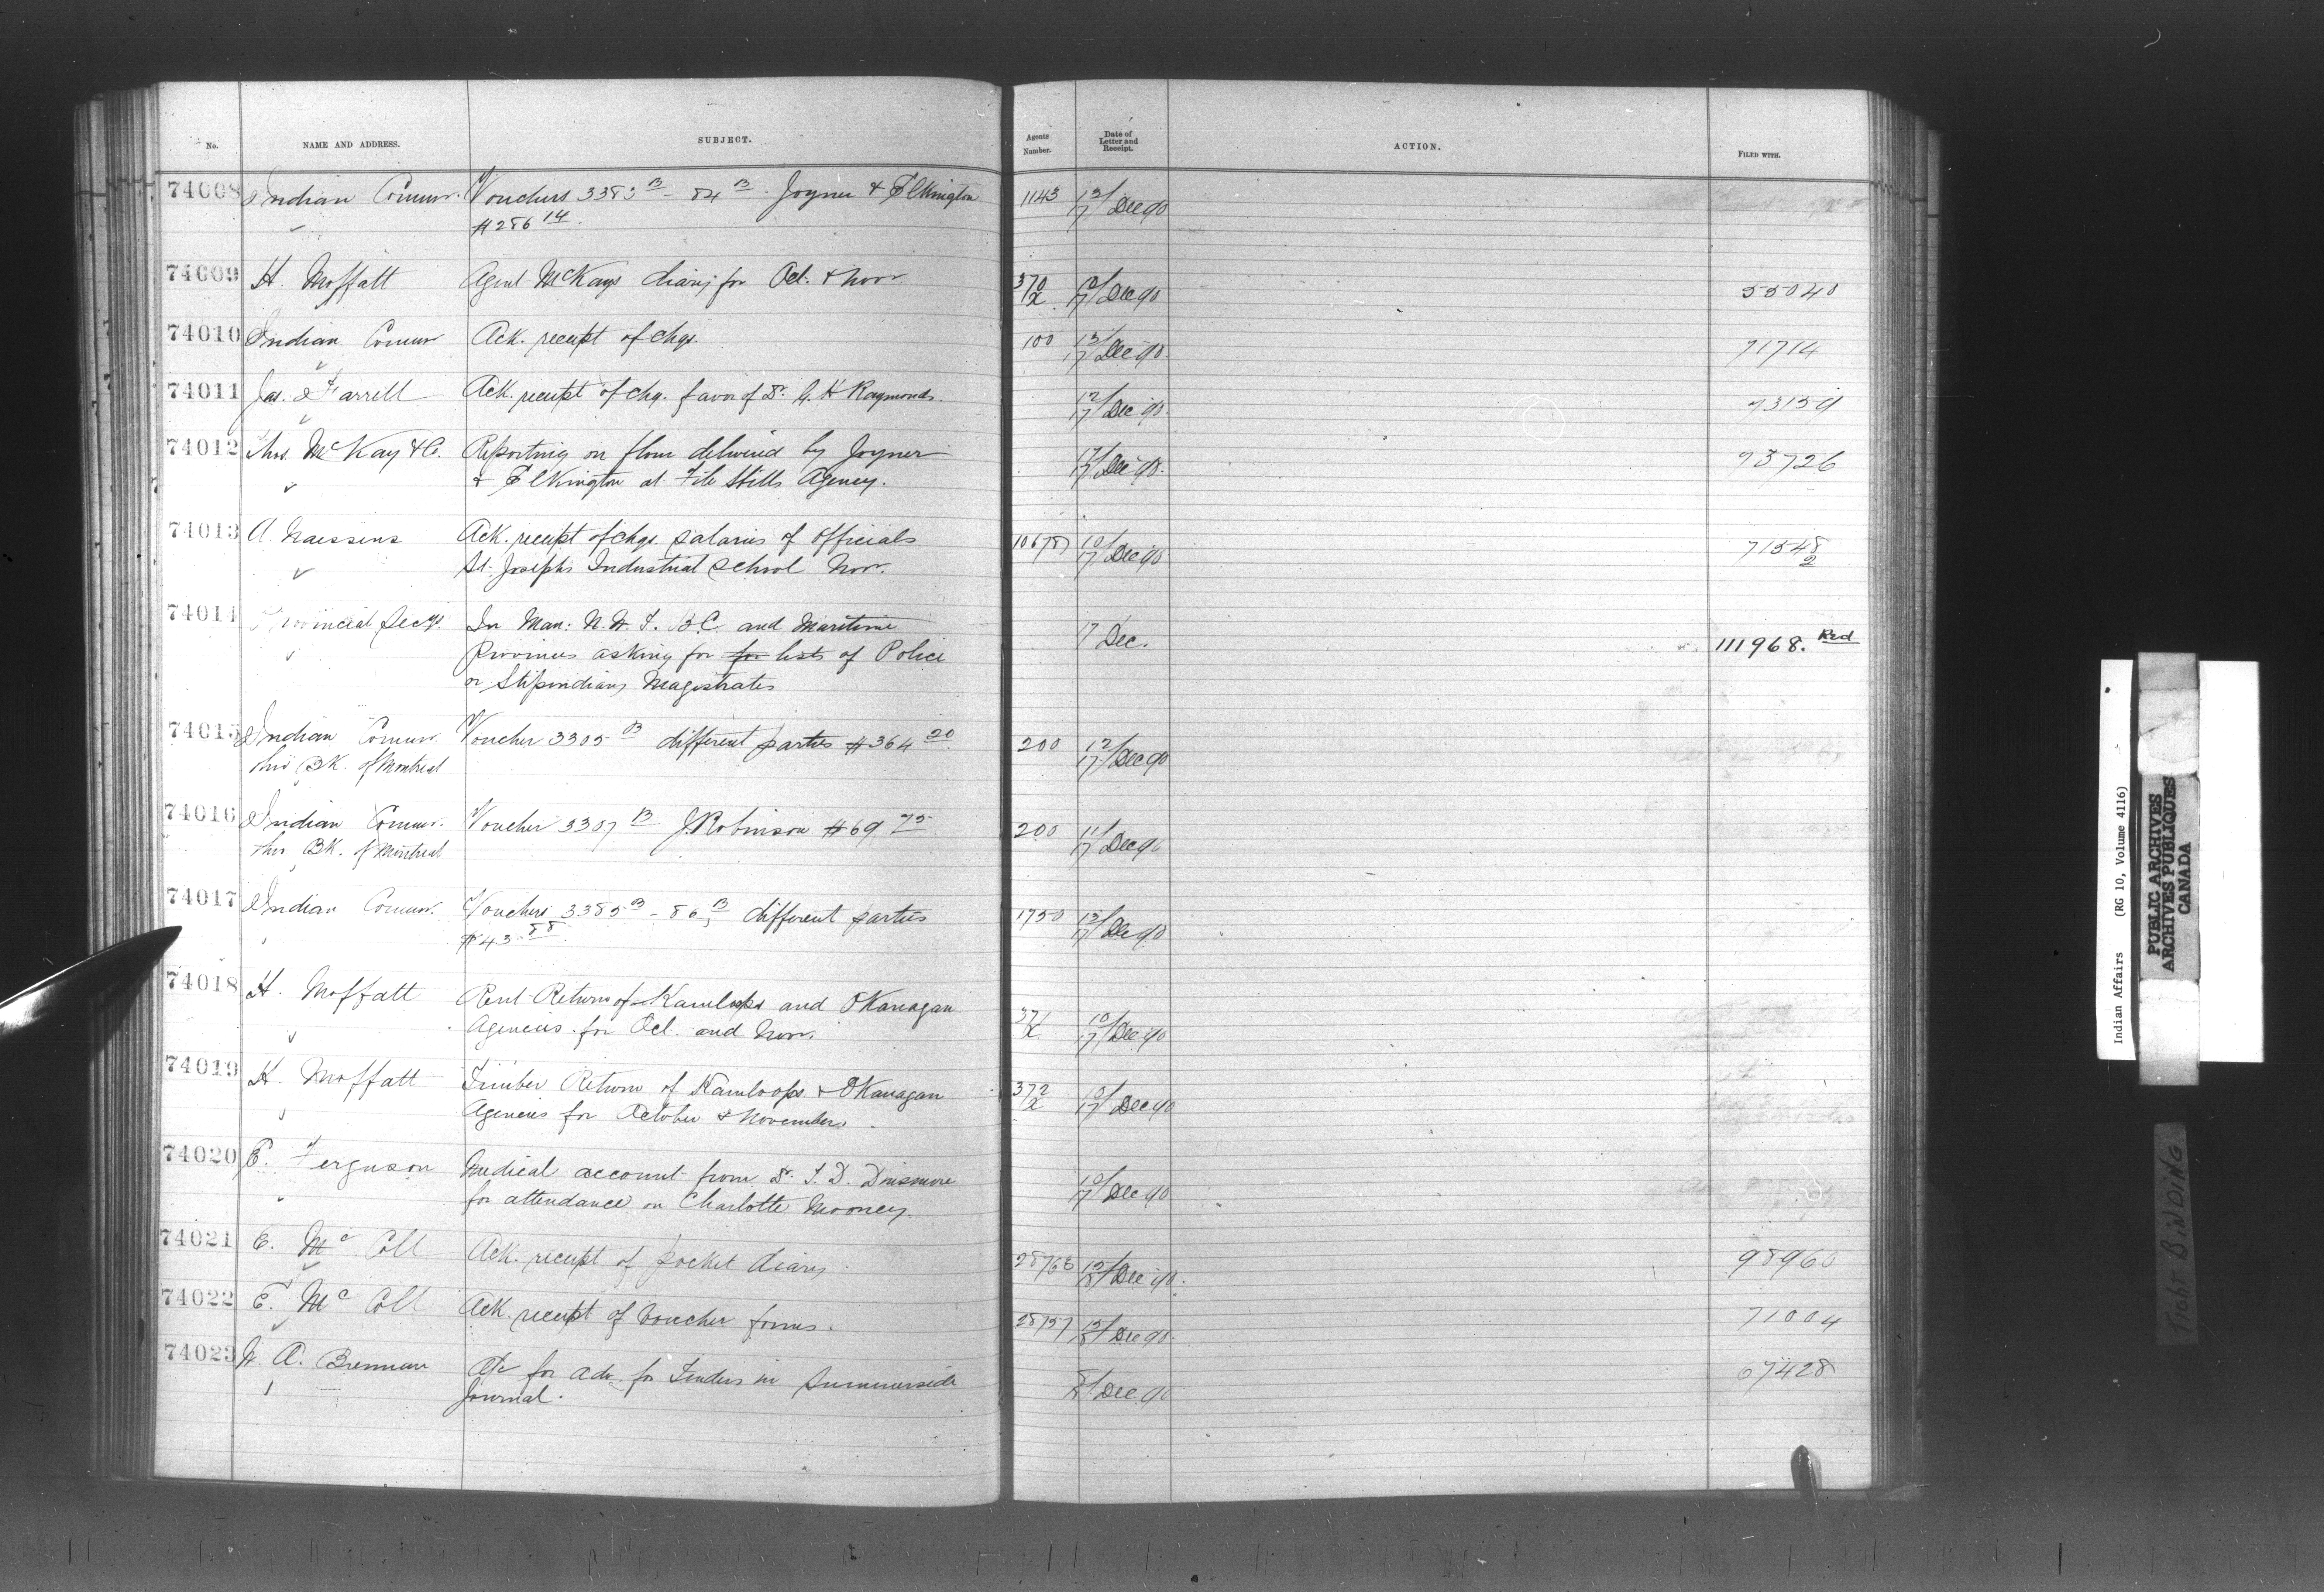 No. NAME AND ADDRESS. SUBJECT. Agents Number. Date of Letter and Receipt. ACTION. FILED WITH.
74008 Indian Commr. Vouchers 3383 B - 84 B. Joyner & Elkington 1143 13/17 Dec 90
$286 14.
74009 H. Moffatt Agent McKays diary for Oct. & Nov. 370/X 10/17 Dec 90 55040
74010 Indian Commr Ack. receipt of chqs. 100 13/17 Dec 90. 71714
74011 Jas. Farrell Ack. receipt of chq. favor of Dr. G. H Raymonds. 12/17 Dec 90. 73159
74012 Thos. McKay & Co. Reporting on flour delivered by Joyner 17/17 Dec 90. 73726
& Elkington at File Hills Agency.
74013 A. Naessens Ack. receipt of chqs. salaries of Officials 10678 10/17 Dec 90 71548
St. Josephs Industrial School Nov. 2
74014 Provincial Secys. In Man: N. W. T. B.C. and Maritime 17 Dec. 111968. Red
Provinces asking for for lists of Police
or Stipendiary Magistrates
74015 Indian Commr. Voucher 3305 B different parties $364 20 200 12/17 Dec 90
thro BK. of Montreal
74016 Indian Commr. Voucher 3307 B J. Robinson $69 75 200 11/17 Dec 90
thro BK. of Montreal
74017 Indian Commr. Vouchers 3385 B - 86 B different parties 1750 13/17 Dec 90
$43 88
74018 H. Moffatt Rent Return of Kamloops and OKanagan 371/X 10/17 Dec 90
Agencies for Oct. and Nov.
74019 H. Moffatt Timber Return of Kamloops & OKanagan 372/X 10/17 Dec 90
Agencies for October & November.
74020 E. Ferguson Medical account from Dr. T. D. Dinsmore 10/17 Dec 90
for attendance on Charlotte Mooney.
74021 E. Mc Coll Ack. receipt of pocket diary. 28768 15/18 Dec 90. 98960
74022 E. Mc Coll Ack. receipt of Voucher forms. 28757 15/18 Dec 90. 71004
74023 W. A. Brennan A/c for adv. for Tenders in Summerside Dec 90 67428
Journal.
Indian Affairs (RG 10, Volume 4116)
PUBLIC ARCHIVES
ARCHIVES PUBLIQUES
CANADA
TIGHT BINDING